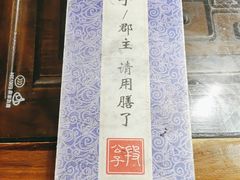 子/郡主 请用膳了
段
公子